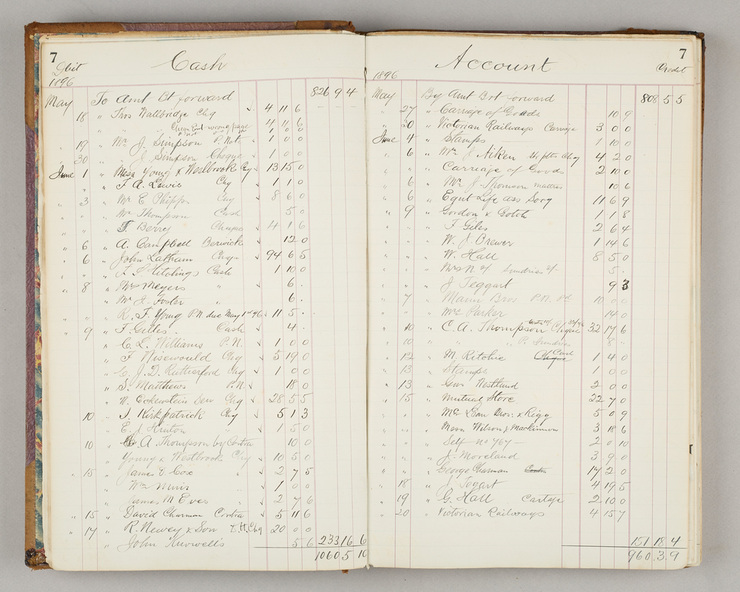 7
Cash
Debit
1896
826 9 4
May To Amt Bt forward
18 " Thos Wallbridge Chq 4 11 6
4 11 6
1 0 0
19 " Mr J. Simpson P. Not. 1 0 0
30 " J Simpson Cheque 1 0 0
June 1 " Mess Young & Westbrook Chq 13 15 0
" " F. A. Lewis Chq 1 1 0
" 3 " Mr E Phipps Chq 8 6 0
" " Mr Thompson Cash 5 0
" " Berry Cheque 4 1 6
" 6 " A. Campbell Berwick 12 0
" 6 " John Latham Chq 94 6 5
" " Hitchings Cash 1 10 0
" 8 " Mrs Meyers " 6
" " Mr J. Foster " 6
" " R. F. Young P.N due May 1st 96 11 5
" 9 " F Giles Cash 4
" " C. L. Williams P.N. 1 0 0
" " F Wisewould Chq 5 19 0
" " C. J. D. Rutherford Chq 1 0 0
" " S. Matthews P.N. 18 0
" " Chq 28 5 5
" 10 " J. Kirkpatrick Chq 5 1 3
" " E. J. Hinton 1 5 0
" 10 " A Thompson by Contra 10 0
" " Young & Westbrook Chq 10 5 0
" 15 " James & Coe " 2 7 5
" " Wm Muir 1 0 0
" " James M Eves 2 7 6
" 15 " David Charman Contra 5 11 6
" 17 " R. Newey & Son 20 0 0
" " John Knowells 5 6 233 16 6
1060 5 10
7
Account
Credit
1896
May By Amt Bot forward 808 5 5
" 27 " Carriage of Goods 10 9
" 30 " Victorian Railways Carriage 3 0 0
June 4 " Stamps 1 10 0
" 6 " Mr J Aitken 4 2 0
" " Carreage of Goods 2 10 0
" 6 " Mr J Thomson 10 6
" 6 " Equit Life Ass Socy 11 6 9
" 9 " Gordon & Gotch 1 1 8
" " F Giles 2 6 4
" " W. J Brewer 1 14 6
" " W. Hall 8 5 0
" " Sundries 5
" " J Teggart 9 3
" 7 " Bros P.N. 10 0 0
" " Mr Parker 14 0
" 10 " C. A. Thompson Cheque 32 17 6
" 10 " Sundries 8
" 12 " M. Ritchie Cash 1 4 0
" 13 " Stamps 1 0 0
" 13 " Westland 2 0 0
" 15 " Mutual Store 22 7 0
" " Bros. & Rigg 5 0 9
" " Mess Wilson & Mackinnon 3 18 6
" " Self No 767 2 0 10
" " J. Moreland 3 9 0
" " George Charman Contra 17 2 0
" 18 " J. Tegart 4 19 5
" 19 " G. Hall Cartage 2 10 0
" 20 " Victorian Railways 4 15 7
151 18 4
960 3 9